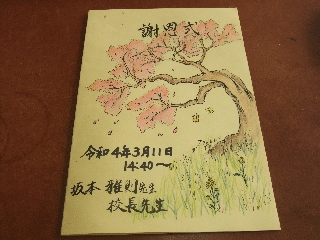 謝恩式
令和4年3月11日
14:40〜
坂本 雅則先生
校長先生